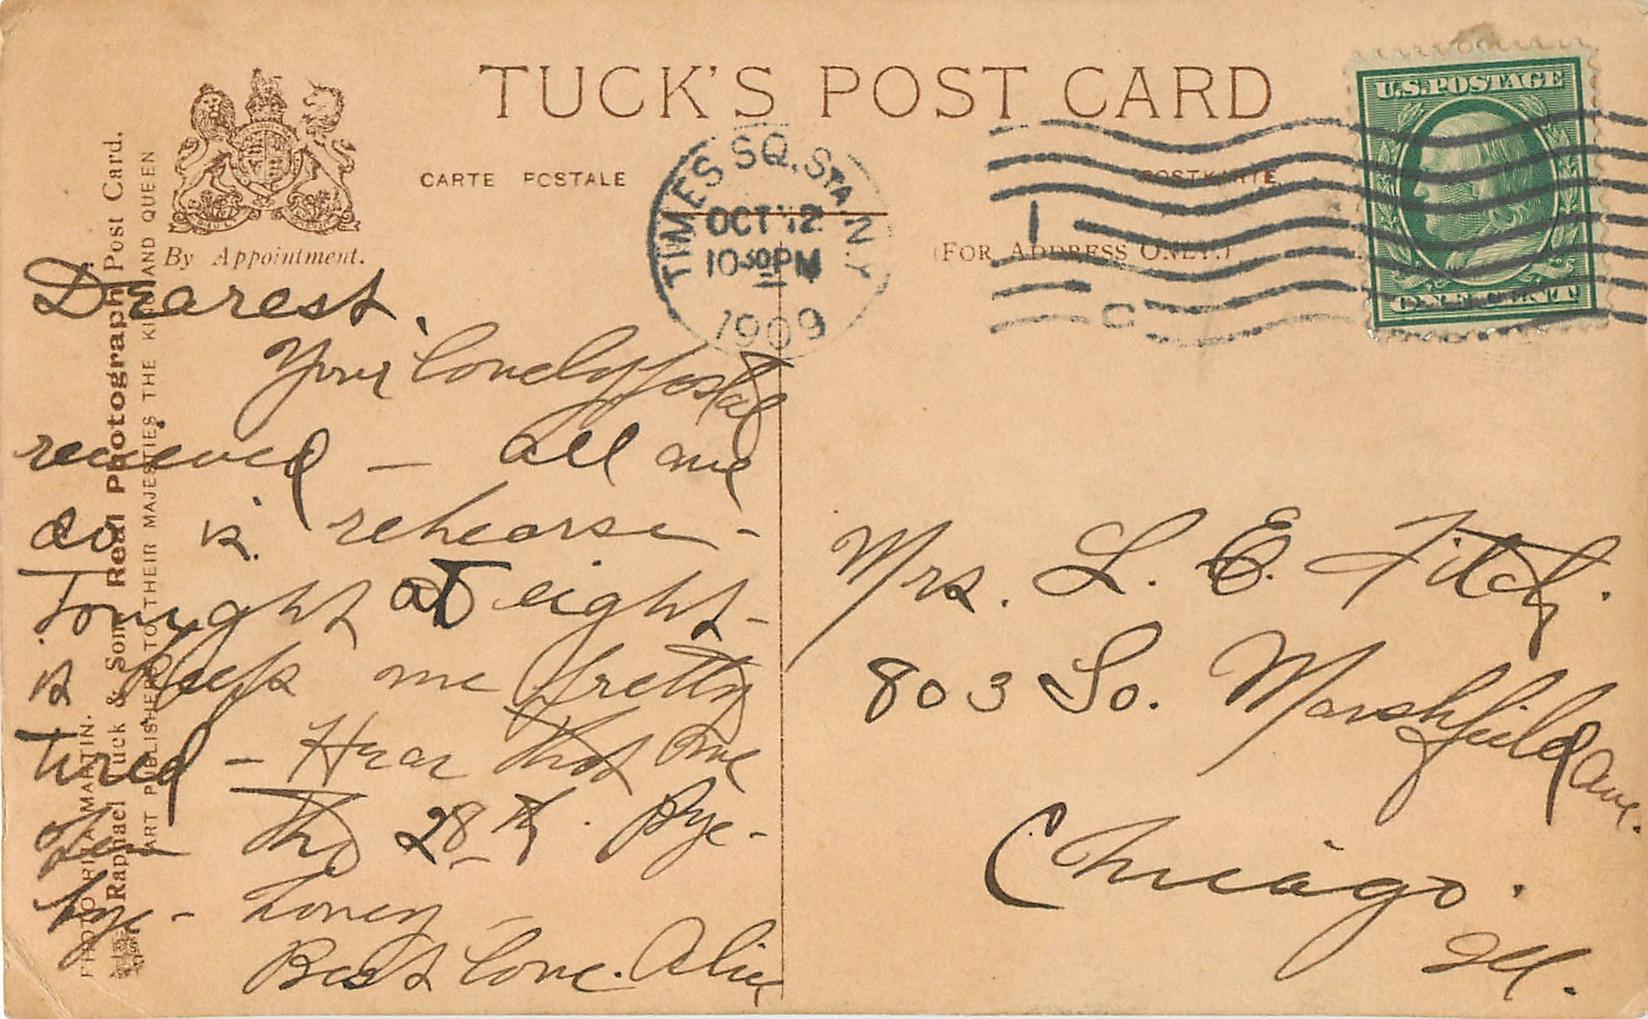 TUCK'S POST CARD
CARTE POSTALE
POSTKARTE
(FOR ADDRESS ONLY.)
By Appointment.
U.S. POSTAGE
ONE CENT
TIMES SQ. STA. N.Y.
OCT 12
10 30 PM
1909
1
C
PHOTO RITA MARTIN.
Raphael Tuck & Sons Real Photograph Post Card.
ART PUBLISHERS TO THEIR MAJESTIES THE KING AND QUEEN
Dearest.
Your lovely postal
received — all we
do is rehearse —
Tonight at eight —
is keeps me pretty
tired — Hear that we
the 28th. Bye-
bye — honey
Best love. Alice
Mrs. L. E. Fitch.
803 So. Marshfield Ave.
Chicago.
Ill.